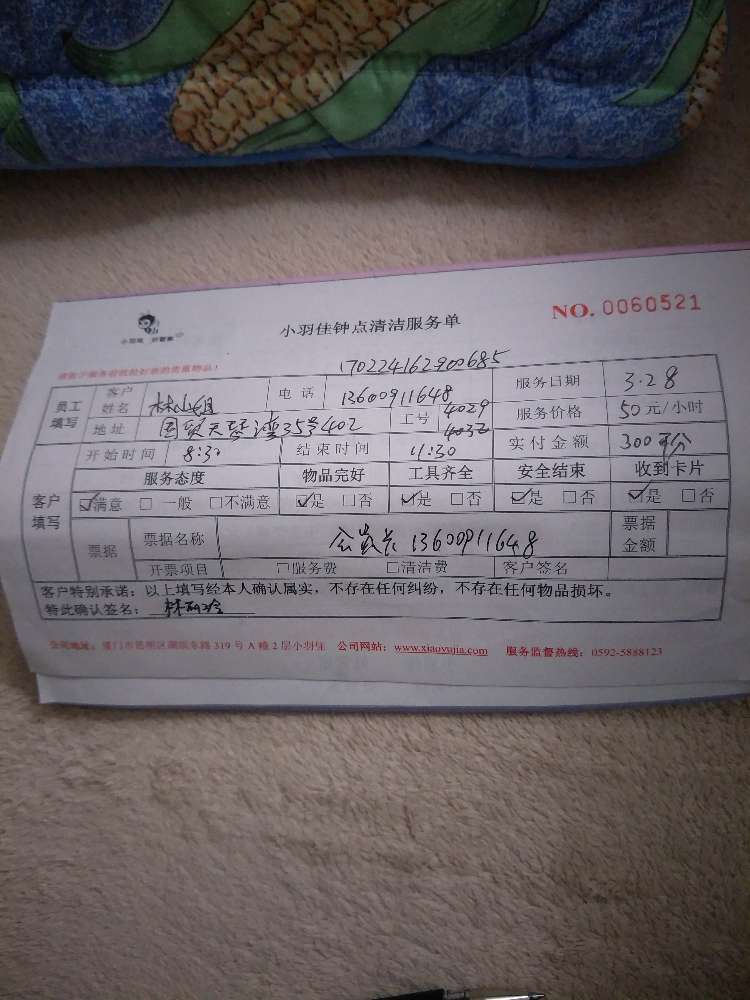 小羽佳 好管家
小羽佳钟点清洁服务单
NO. 0060521
请客户服务前收拾好您的贵重物品!
170224162900685
员工填写 客户姓名 林小姐 电话 13600911648 服务日期 3.28
地址 国贸天琴湾35号402 工号 4029 服务价格 50元/小时
4036
开始时间 8:30 结束时间 11:30 实付金额 300
客户填写 服务态度 物品完好 工具齐全 安全结束 收到卡片
☑满意 □一般 □不满意 ☑是 □否 ☑是 □否 ☑是 □否 ☑是 □否
票据 票据名称 13600911648 票据金额
开票项目 □服务费 □清洁费 客户签名
客户特别承诺:以上填写经本人确认属实,不存在任何纠纷,不存在任何物品损坏。
特此确认签名:
公司地址:厦门市思明区湖滨东路 319 号 A 幢 2 层小羽佳 公司网站:www.xiaoyujia.com 服务监督热线:0592-5888123